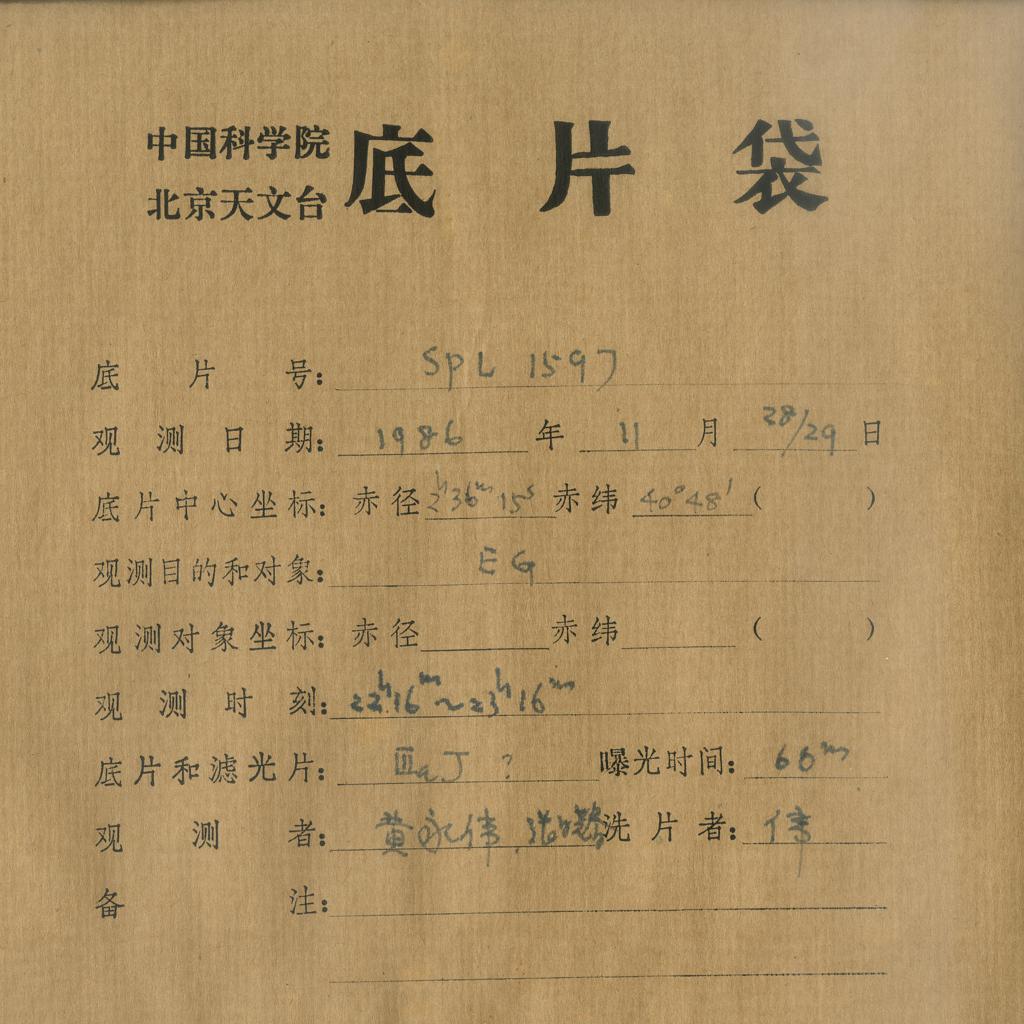 中国科学院
北京天文台
底片袋
底片号: SPL 1597
观测日期: 1986 年 11 月 28/29 日
底片中心坐标: 赤径 2h36m15s 赤纬 40°48′ ( )
观测目的和对象: EG
观测对象坐标: 赤径 赤纬 ( )
观测时刻: 22h16m~23h16m
底片和滤光片: ⅢaJ ? 曝光时间: 60m
观测者: 黄永伟、张 洗片者: 伟
备注: